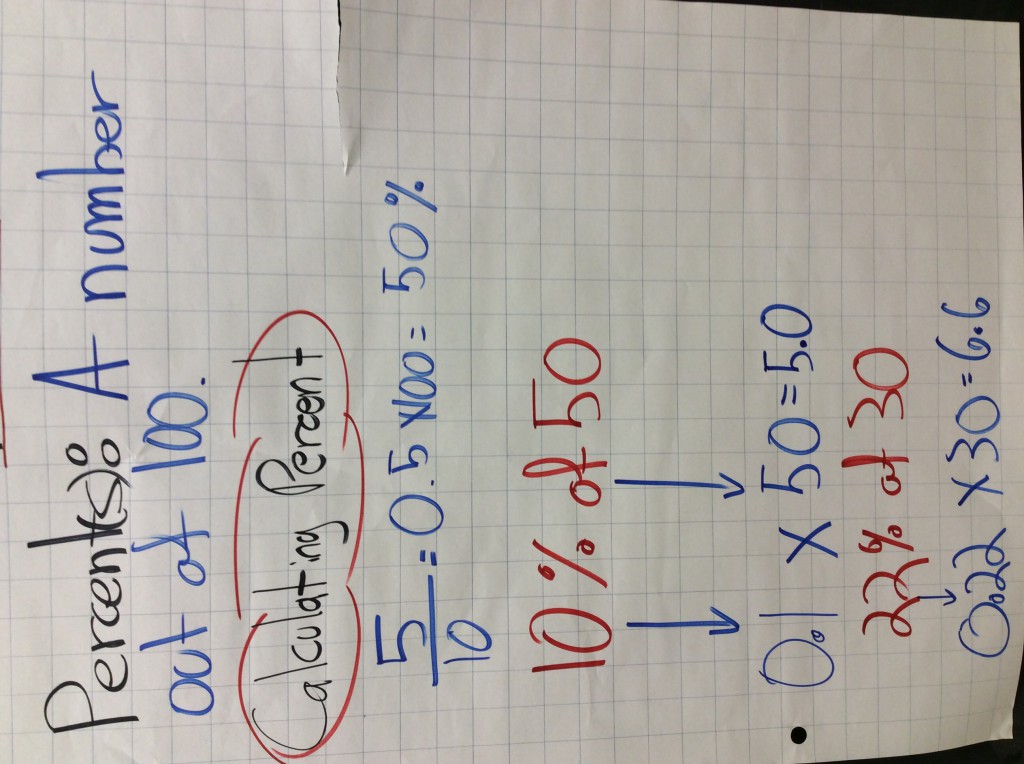 Percent(s): A number
out of 100.
Calculating Percent
5/10 = 0.5 x100 = 50%
10% of 50
0.1 x 50 = 5.0
22% of 30
0.22 x 30 = 6.6